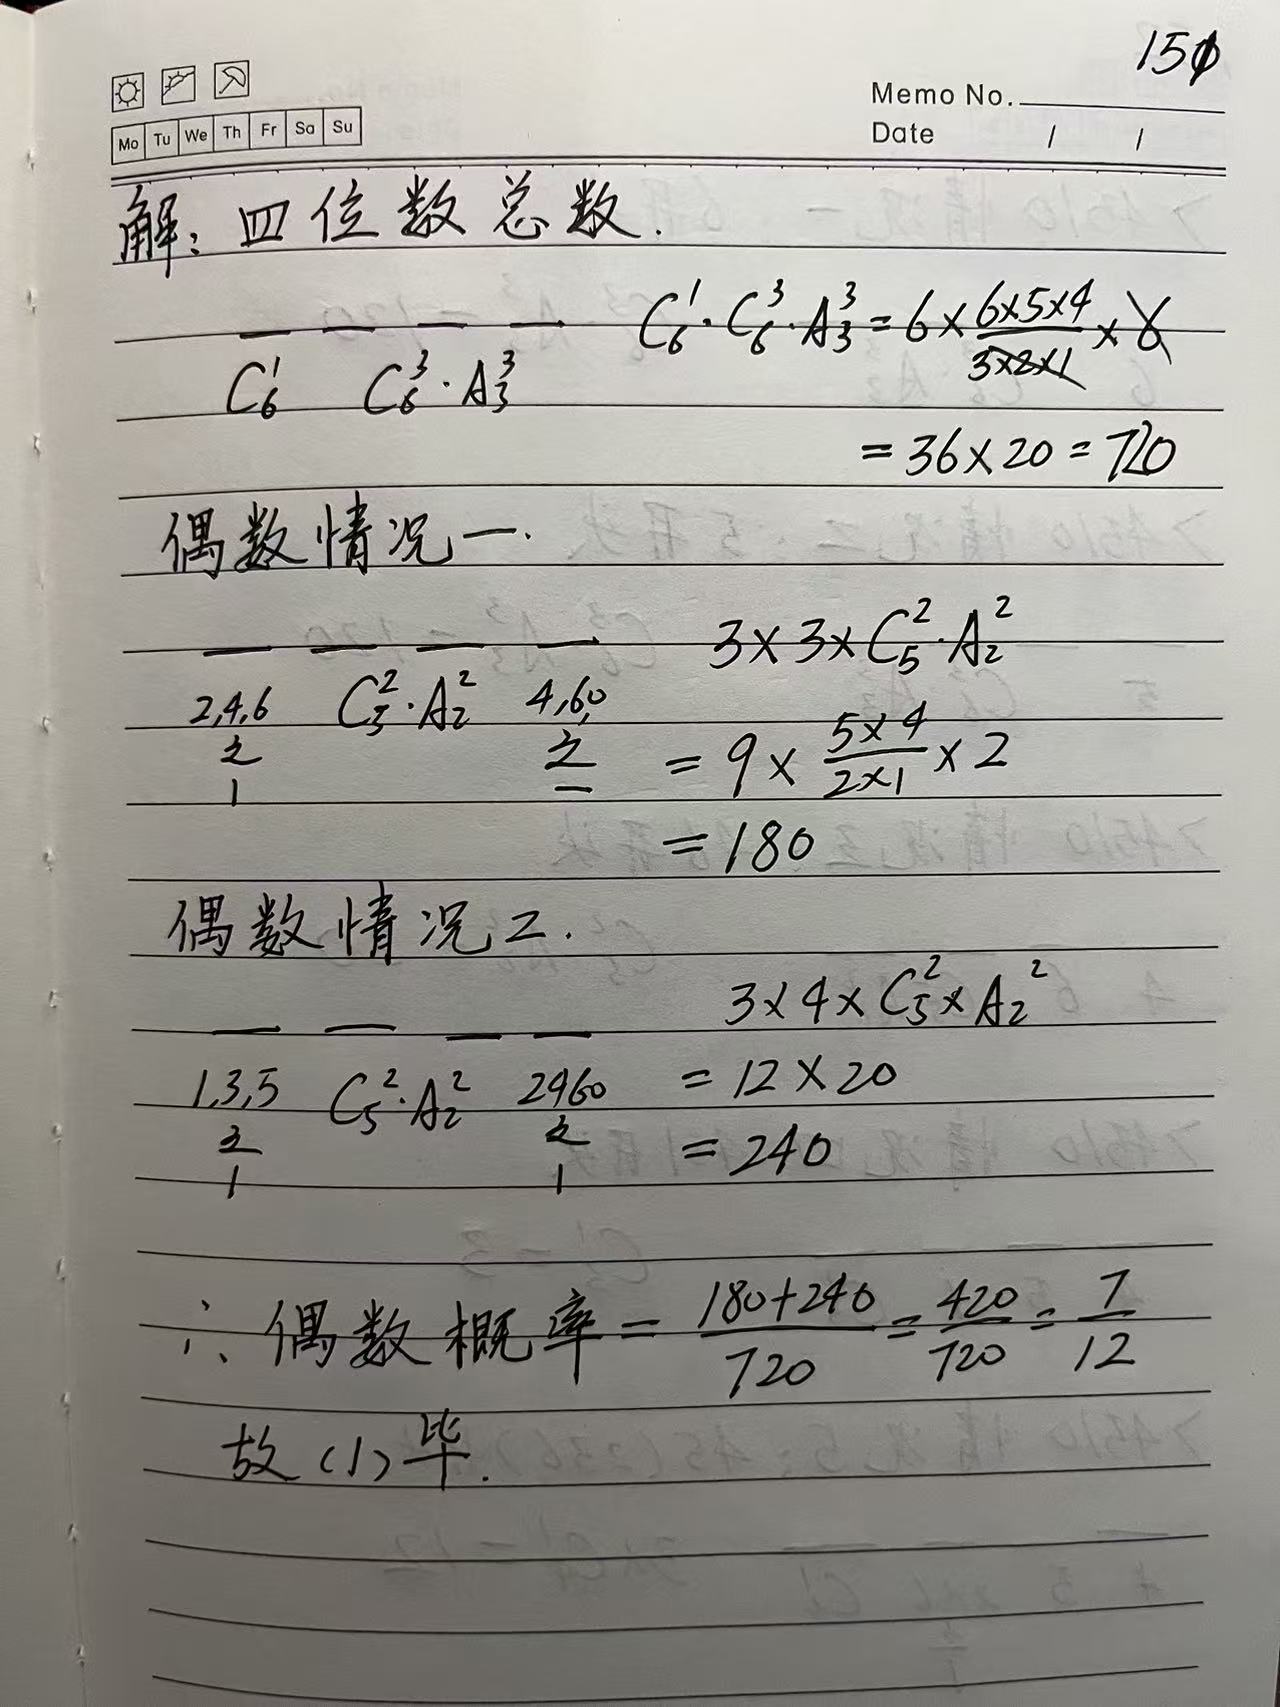 150
Memo No.
Mo Tu We Th Fr Sa Su
Date / /
解：四位数总数.
C₆¹·C₆³·A₃³ = 6×(6×5×4)/(3×2×1)×6
C₆¹ C₆³·A₃³
= 36×20 = 720
偶数情况一.
3×3×C₅²·A₂²
2,4,6 C₅²·A₂² 4,6,0
之 之
1 一
= 9×(5×4)/(2×1)×2
= 180
偶数情况2.
3×4×C₅²×A₂²
1,3,5 C₅²·A₂² 2460
之 之
1 1
= 12×20
= 240
∴ 偶数概率 = (180+240)/720 = 420/720 = 7/12
故(1)毕.